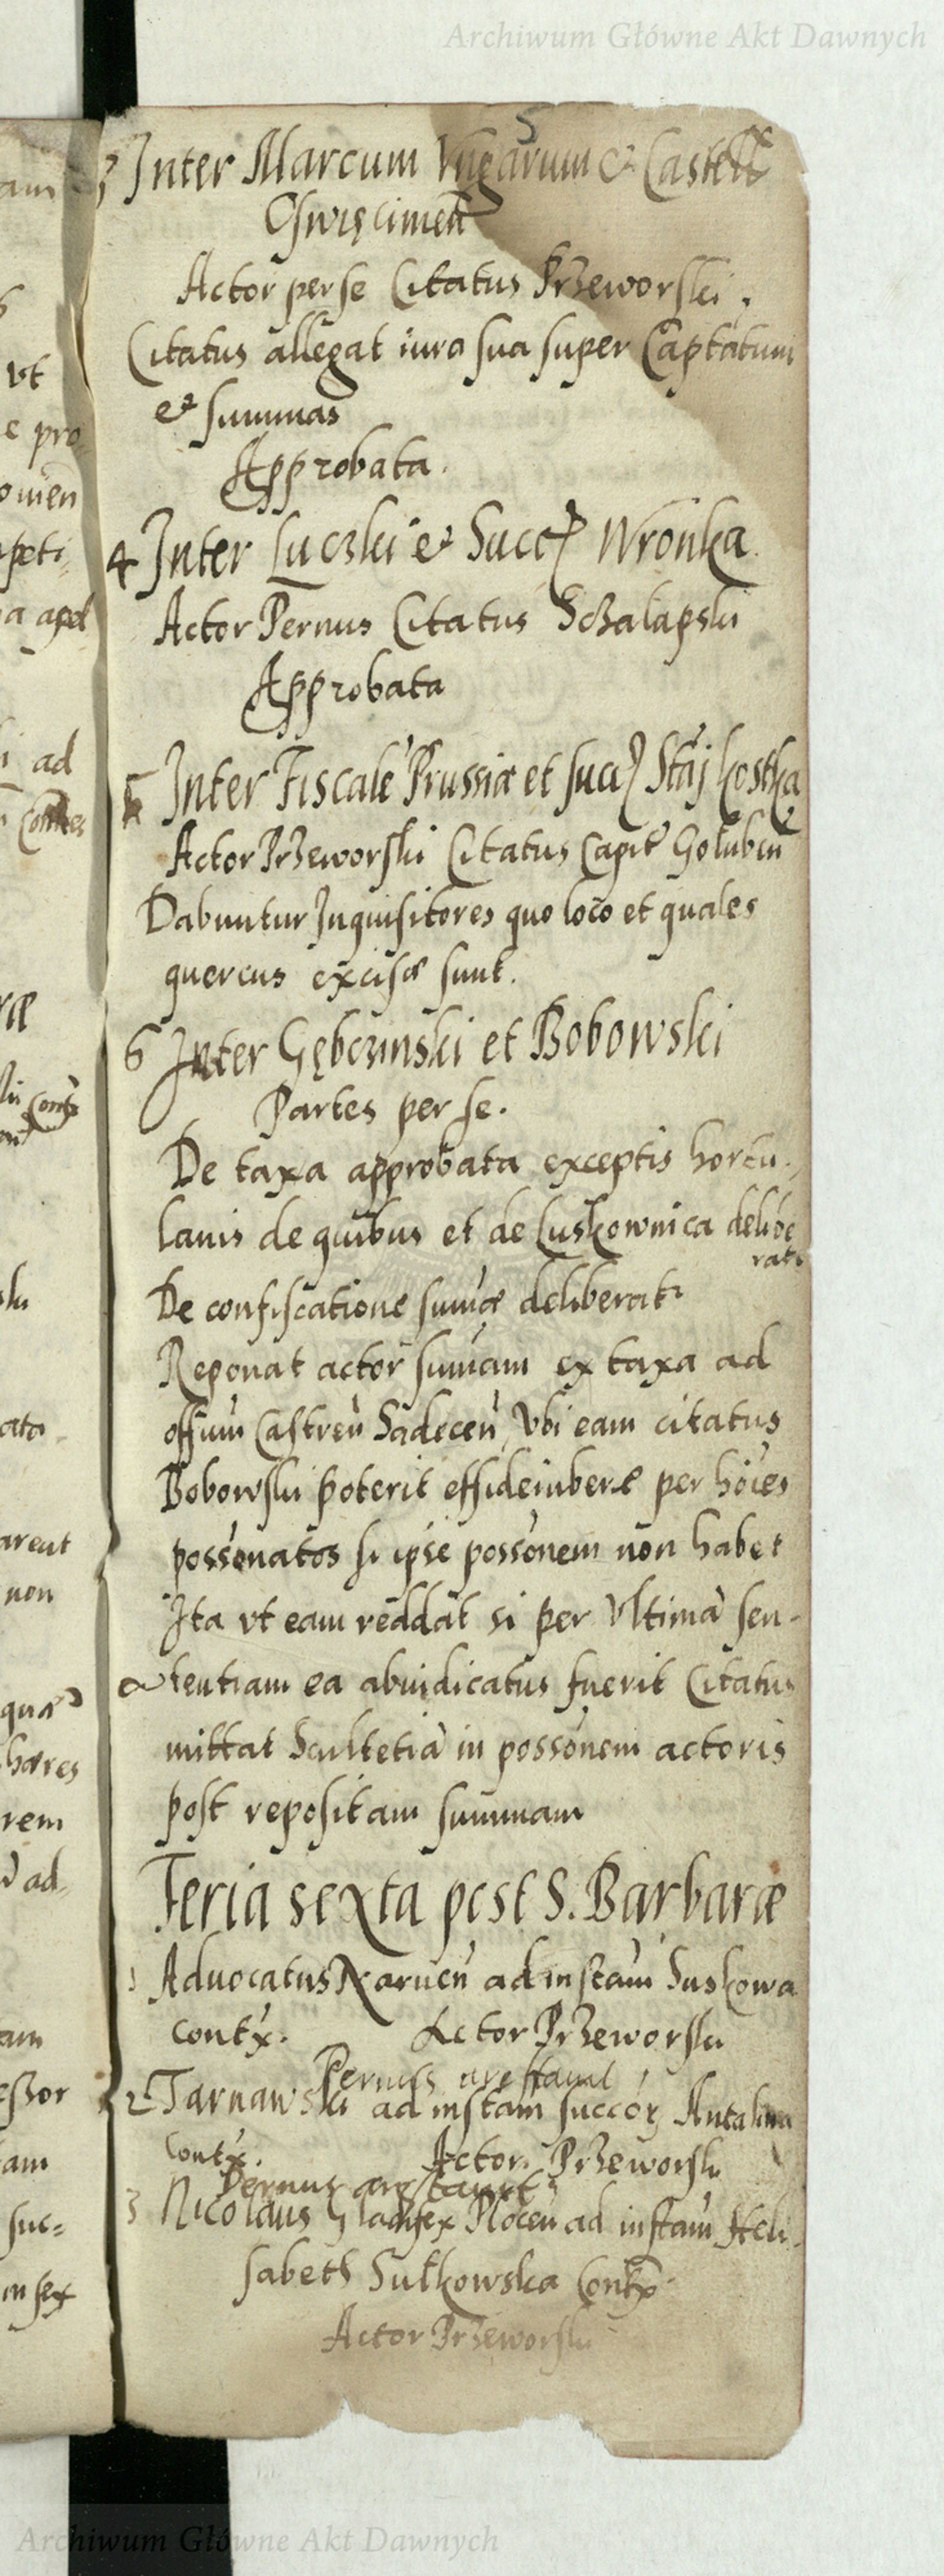 Archiwum Główne Akt Dawnych
5
3 Inter Marcum Vngarum et Castell
Oswięcimeñ
Actor per se Citatus Przeworski.
Citatus allegat iura sua super Captatum
et summas
Approbata.
4 Inter Luczki et Succ Wronka.
Actor Pernus Citatus Sczalapski
Approbata
5 Inter Fiscale Prussiæ et succ Staj Kostka
Actor Przeworski Citatus Capit Golubeñ
Dabuntur Inquisitores quo loco et quales
quercus excisæ sunt.
6 Inter Gębczinski et Bobowski
Partes per se.
De taxa approbata exceptis hortu-
lanis de quibus et de Luskownica delibe
rat
De confiscatione sum̄æ deliberat
Reponat actor sum̄am ex taxa ad
offum Castreñ Sadeceñ, Vbi eam citatus
Bobowski poterit effideiubere per hōies
possonatos si ipse possonem non habet
Ita vt eam reddat si per Vltimā sen-
tentiam ea abiudicatus fuerit Citatus
mittat Scultetiā in possonem actoris
post repositam summam
Feria sexta post S. Barbaræ
1 Aduocatus Narueñ ad instam Suskowa
contx. Actor Przeworski
Pernus arestauit
2 Tarnawski ad instam succor Antalina
Contx. Actor Przeworski
Pernus arestauit
3 Nicolaus Gladifex Ploceñ ad instam Heli-
sabeth Sulkowska Contx
Actor Przeworski
am
vt
e pro
omen
peti
a apel
i ad
ato
arent
non
hæres
rem
ad-
am
essor
am
suc=
insex
Archiwum Główne Akt Dawnych